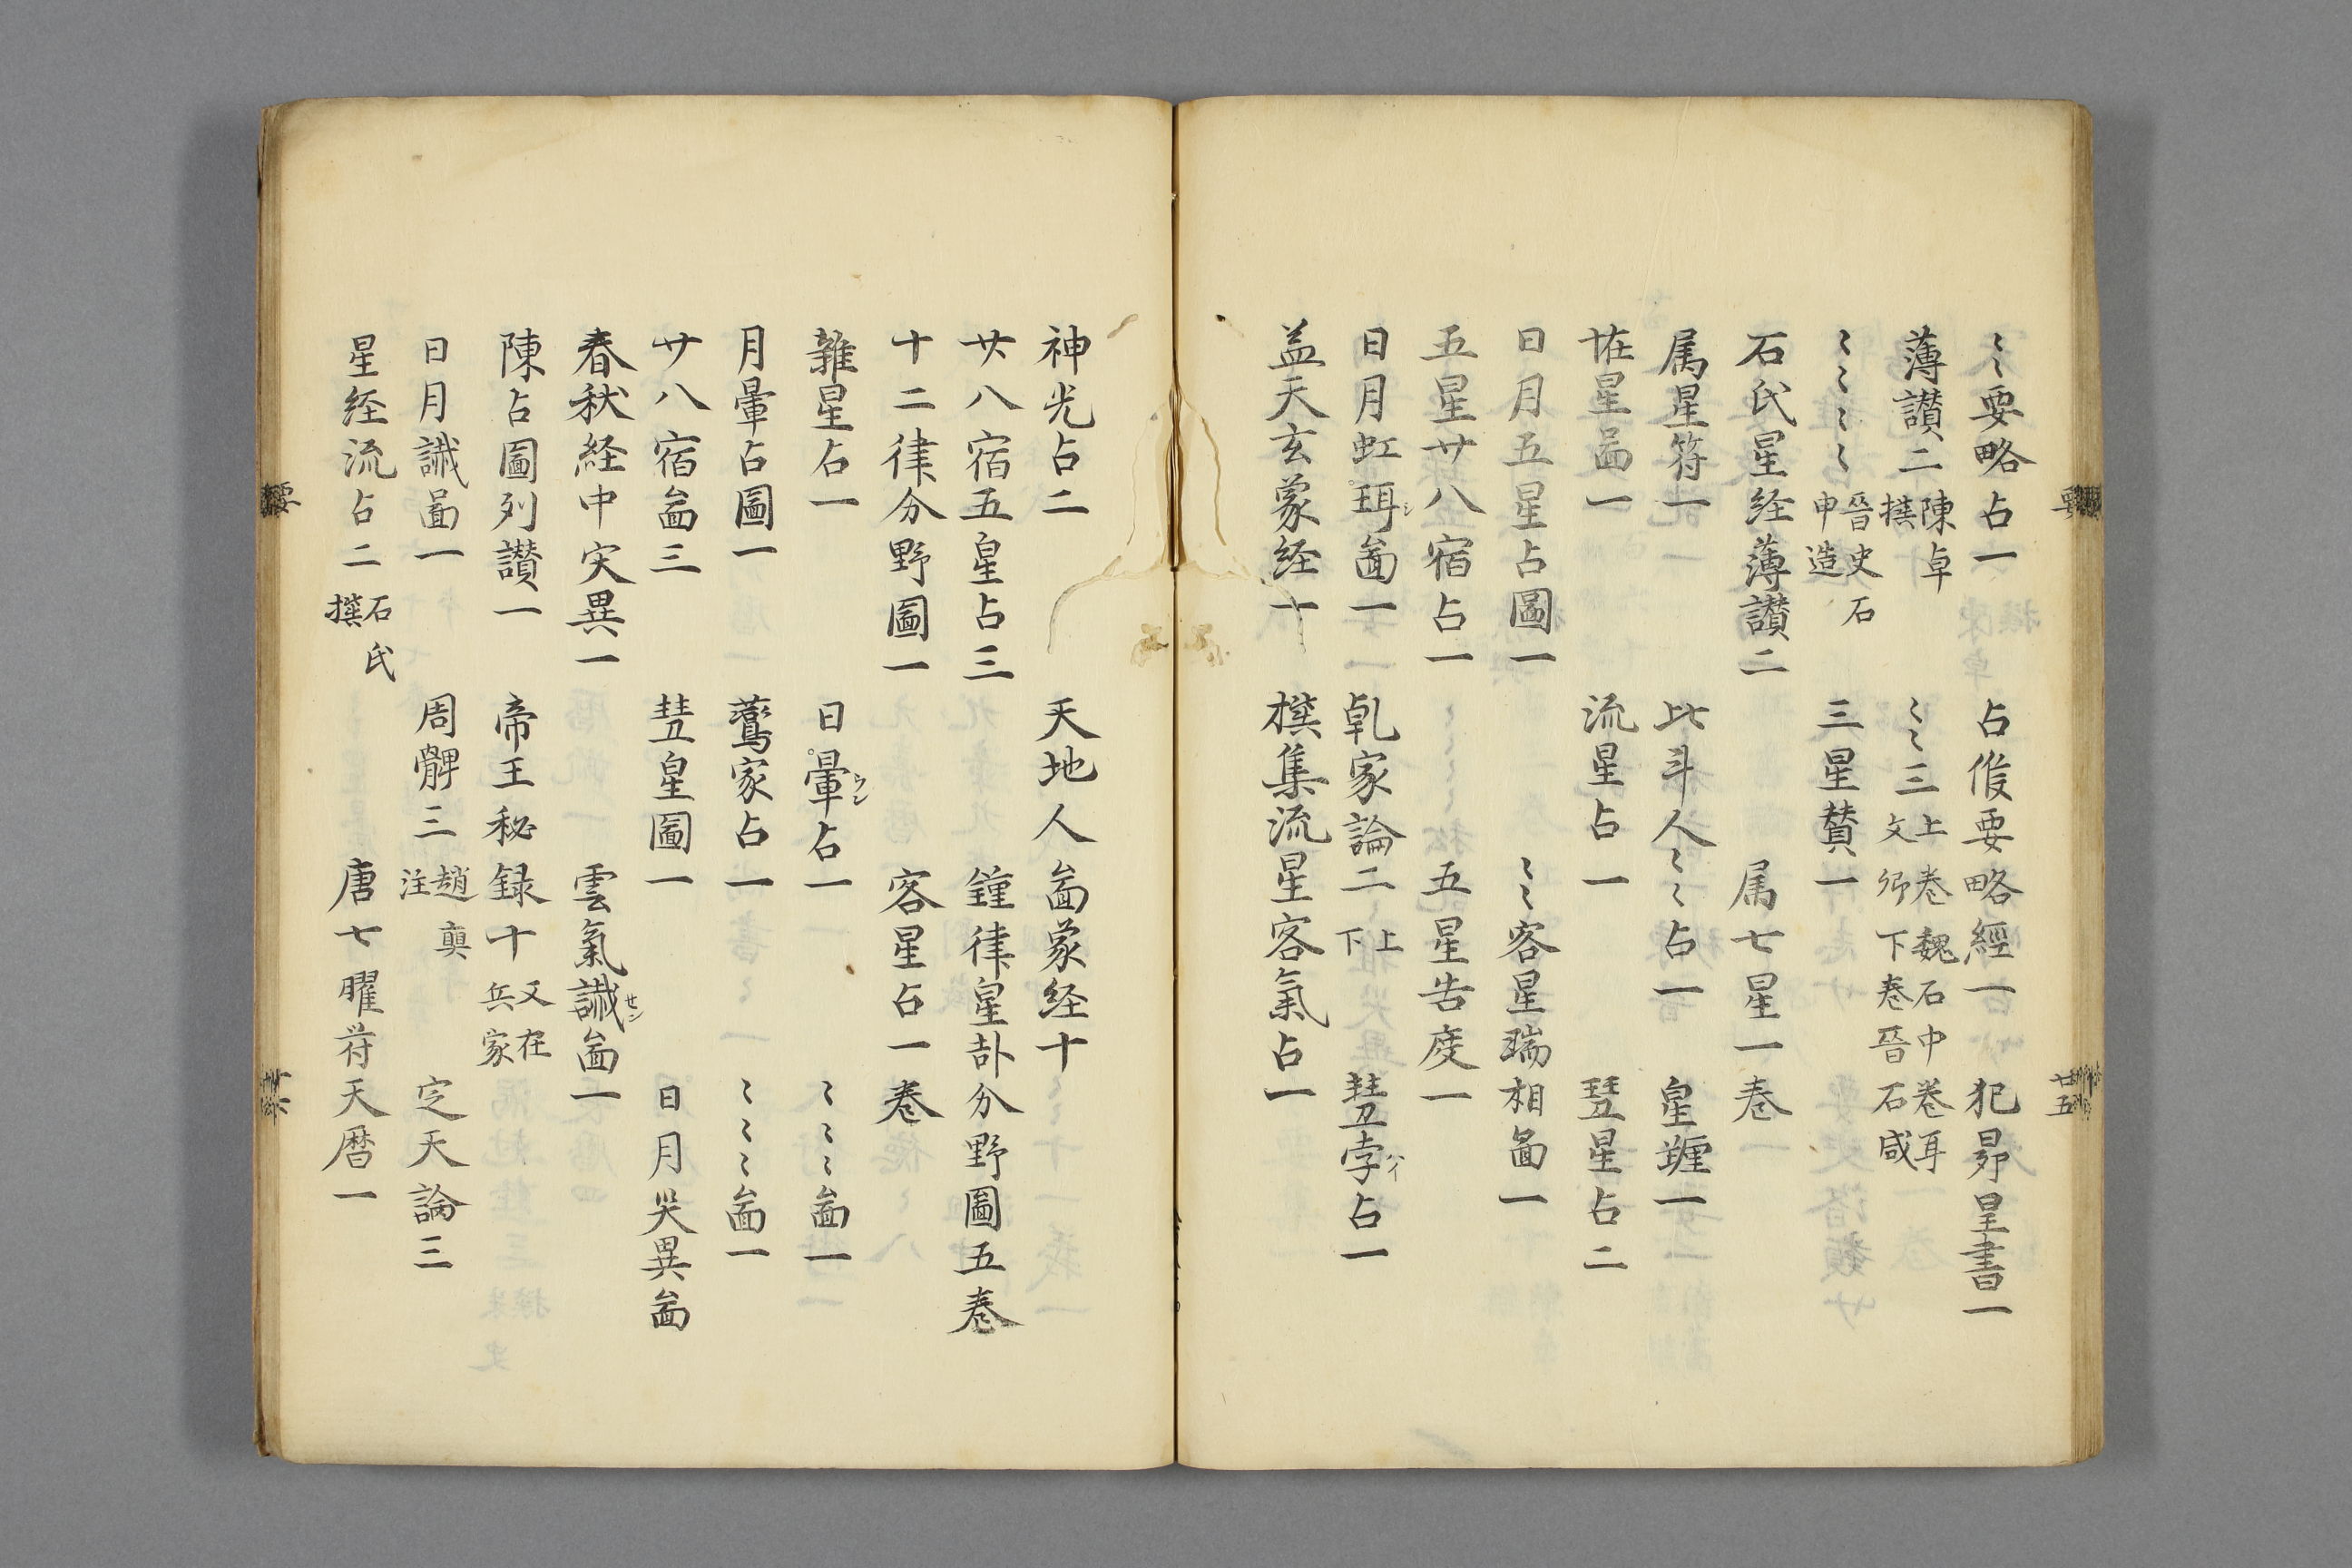 〻〻要略占一 占傁要略經一 犯昴星書一
薄讃二陳卓撰 〻〻三上卷魏石中卷耳文卿下卷晉石咸
〻〻〻〻晉史石申造 三星賛一
石氏星経薄讃二 属七星一卷
属星符一 比斗人〻〻占一 星𨤲一
星啚一 流星占一 彗星占二
日月五星占圖一 〻〻客星瑞相啚一
五星廿八宿占一 五星告度一
日月虹珥啚一 乹家論二上下 彗孛ハイ占一
盖天玄象経十 撰集流星客氣占一
要
廿五
神光占二 天地人啚象経十
廿八宿五星占三 鍾律星卦分野圖五卷
十二律分野圖一 客星占一卷
雜星占一 日暈ウン占一 〻〻〻啚一
月暈占圖一 薦家占一 〻〻〻啚一
廿八宿啚三 彗星圖一 日月災異啚
春秋経中灾異一 雲氣讖セン啚一
陳占圖列讃一 帝王秘録十又在兵家
日月讖啚一 周髀三趙奭注 定天論三
星経流占二石氏撰 唐七曜符天暦一
要
廿六